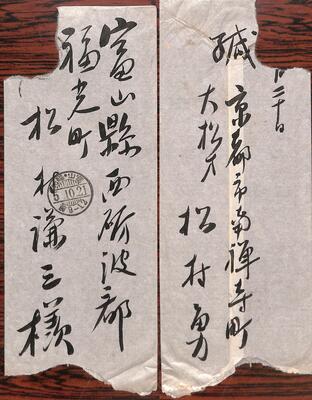 富山縣西砺波郡
福光町
松村謙三様
5.10.21
廿二十日
緘
京都市南禅寺町
大松才
松村勇